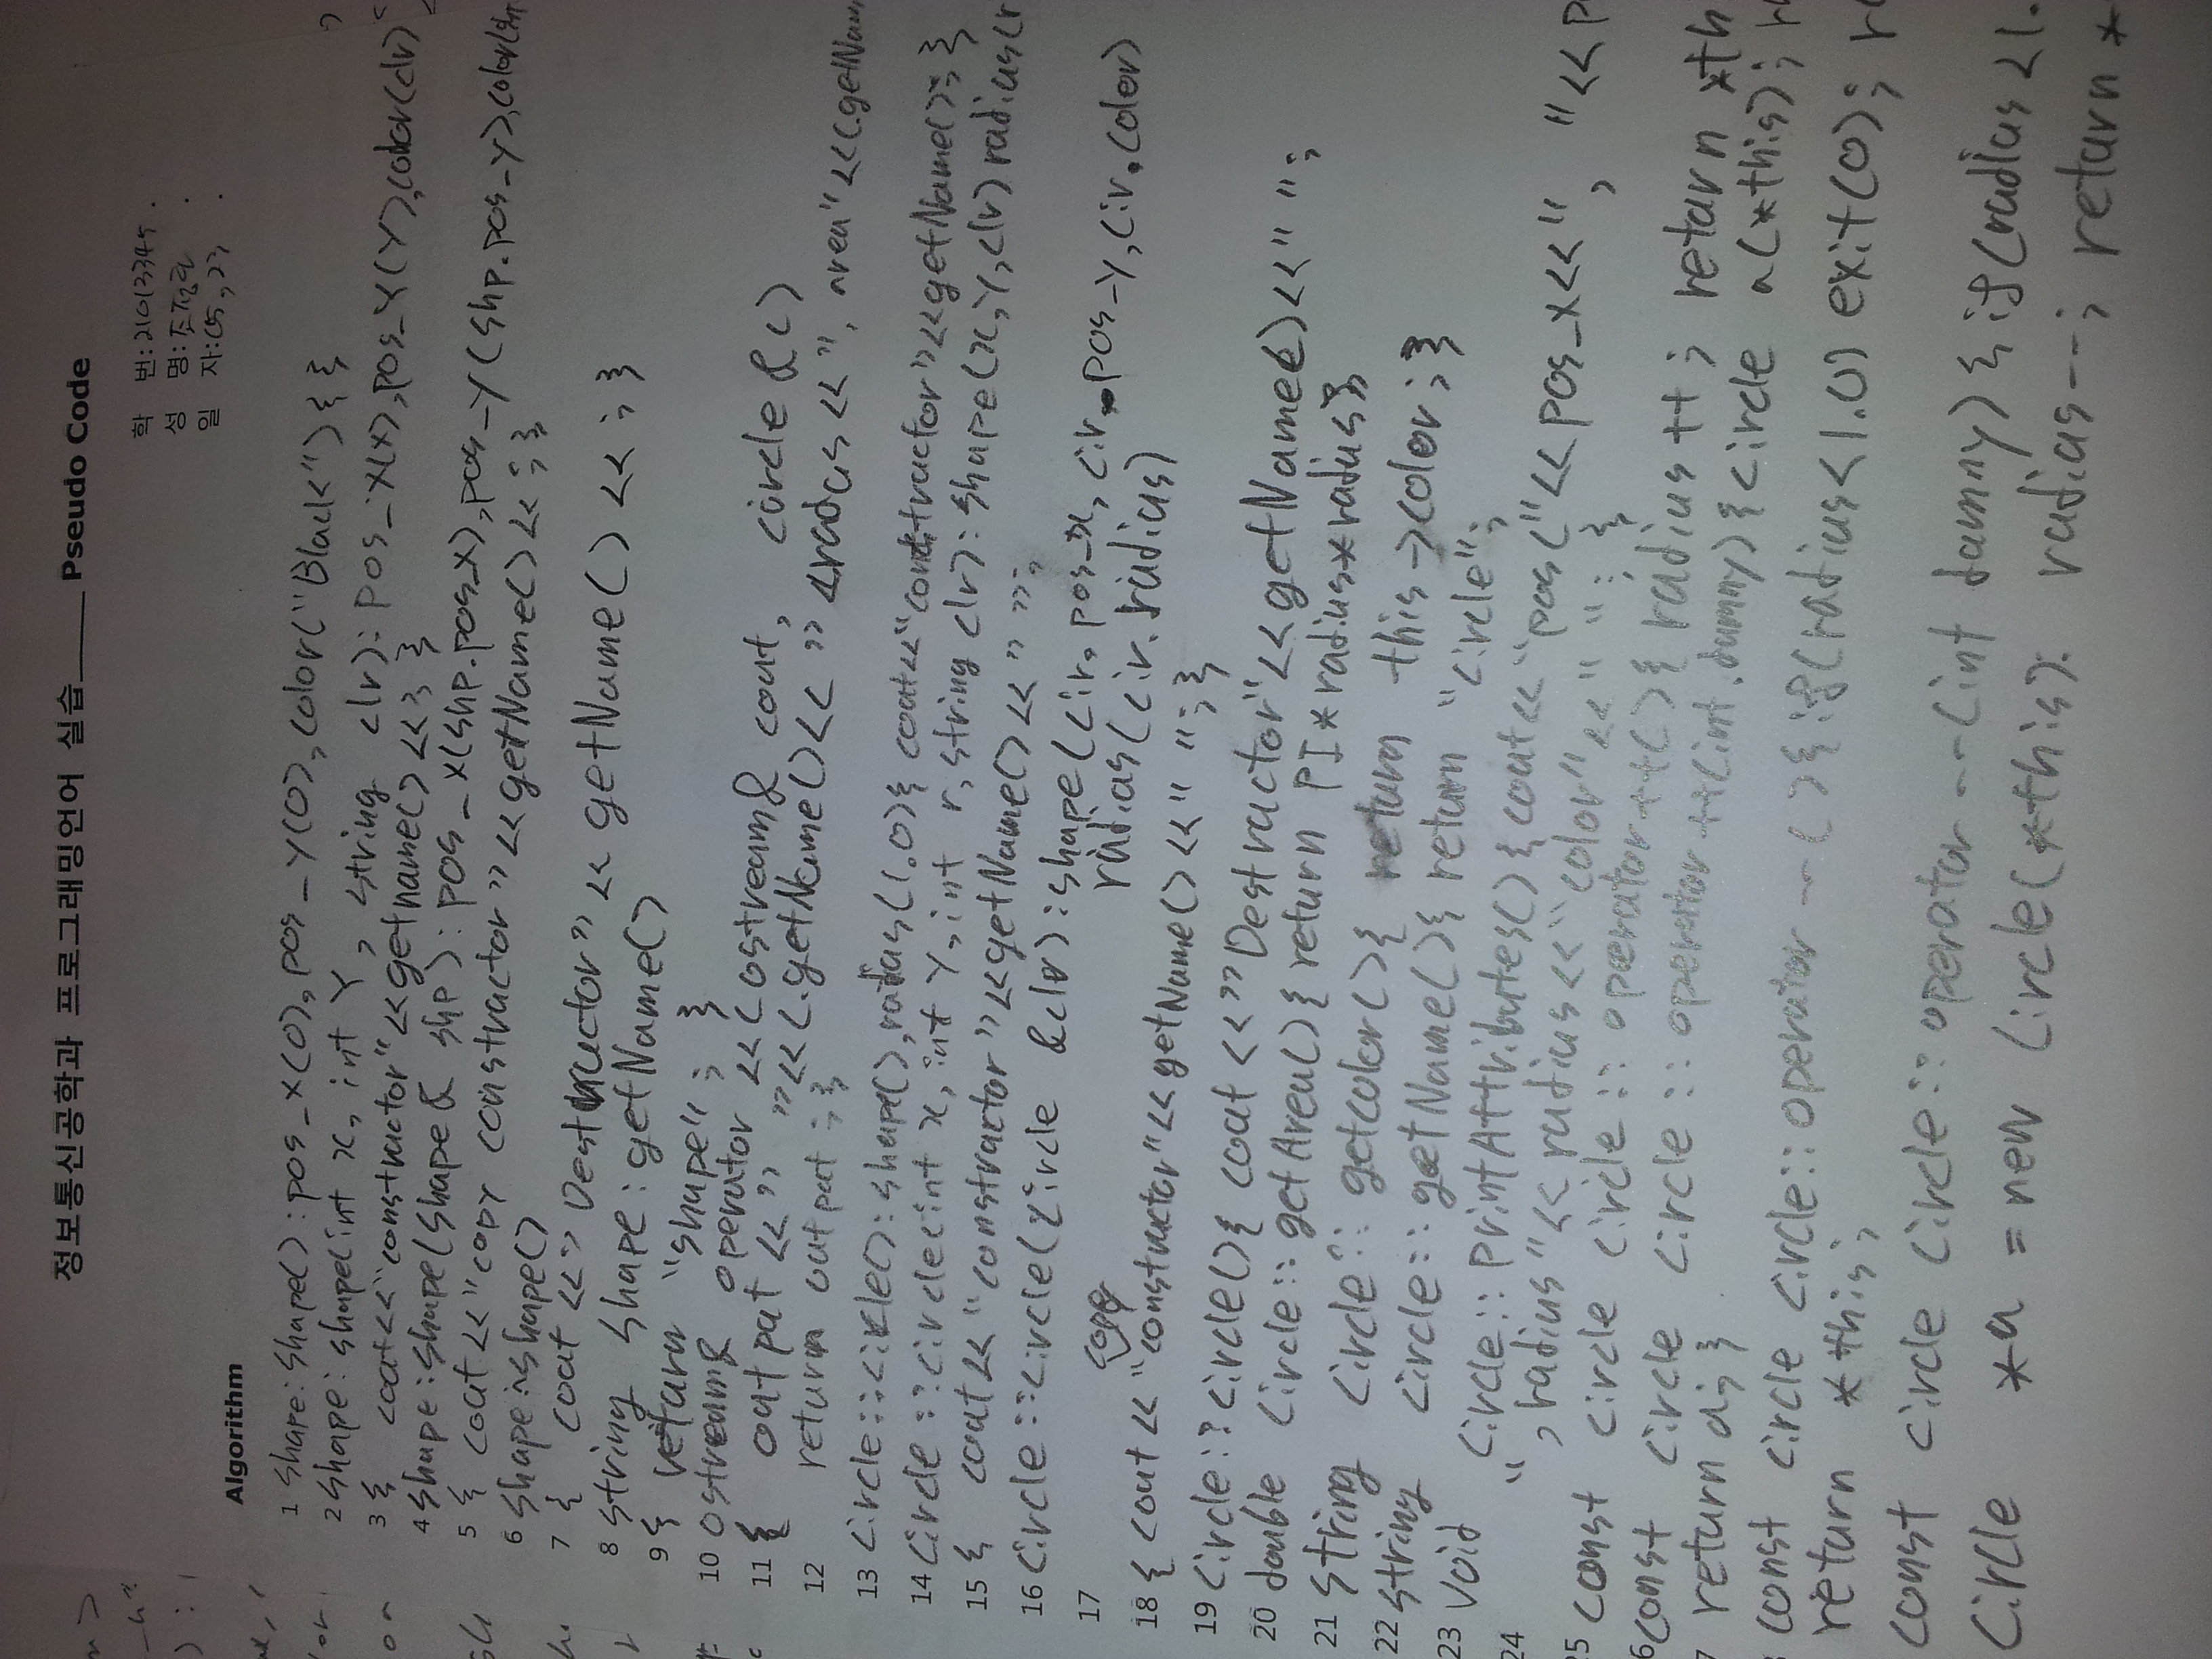 정보통신공학과 프로그래밍언어 실습____ Pseudo Code
학 번:21013345 .
성 명: .
일 자:05,23 .
Algorithm
1 shape:shape():pos_x(0),pos_Y(0),color("Black"){}
2 shape:shape(int x, int Y, string clr):pos_x(x),pos_Y(Y),color(clr)
3 { cout<<"constructor"<<getname()<<; }
4 shape:shape(shape& shp):pos_x(shp.pos_x),pos_Y(shp.pos_Y),color(sh
5 { cout<<"copy constructor"<<getName()<<;}
6 shape:~shape()
7 { cout <<" Destructor" << getName() << ;}
8 string shape:getName()
9 { return "shape"; }
10 ostream& operator <<(ostream& cout, circle &c)
11 { output <<" "<<c.getName()<<" <radus<<", area"<<c.getNam
12 return output ;}
13 circle::circle():shape(),radius(1.0){ cout<<"constructor"<<getName();}
14 circle::circle(int x, int Y, int r, string clr):shape(x,Y,clr)radius(r
15 { cout<<"constructor"<<getName()<<" ";
16 circle::circle(circle &clr):shape(cir.pos_x,cir.pos_Y,cir.color)
17 radias(cir.radius)
copy
18 { cout<<"constructor"<<getName()<<" ";}
19 circle::~circle(){ cout <<"Destructor"<<getName()<<" ";
20 double circle::getArea(){ return PI*radius*radius}
21 string circle::getcolor(){ return this->color;}
22 string circle::getName(){ return "circle";
23 void circle::printAttributes(){cout<<"pos("<<pos_x<<", "<<p
24 ",radius"<<radius<<"color"<<" "; }
25 const circle circle::operator++(){ radius++; return *th
6 const circle circle::operator++(int.dummy){circle a(*this); r
7 return a;}
const circle circle::operator--(){if(radius<1.0) exit(0); r
return *this;
const circle circle::operator--(int dammy){if(radius<1.
circle *a = new circle(*this); radias--; return *